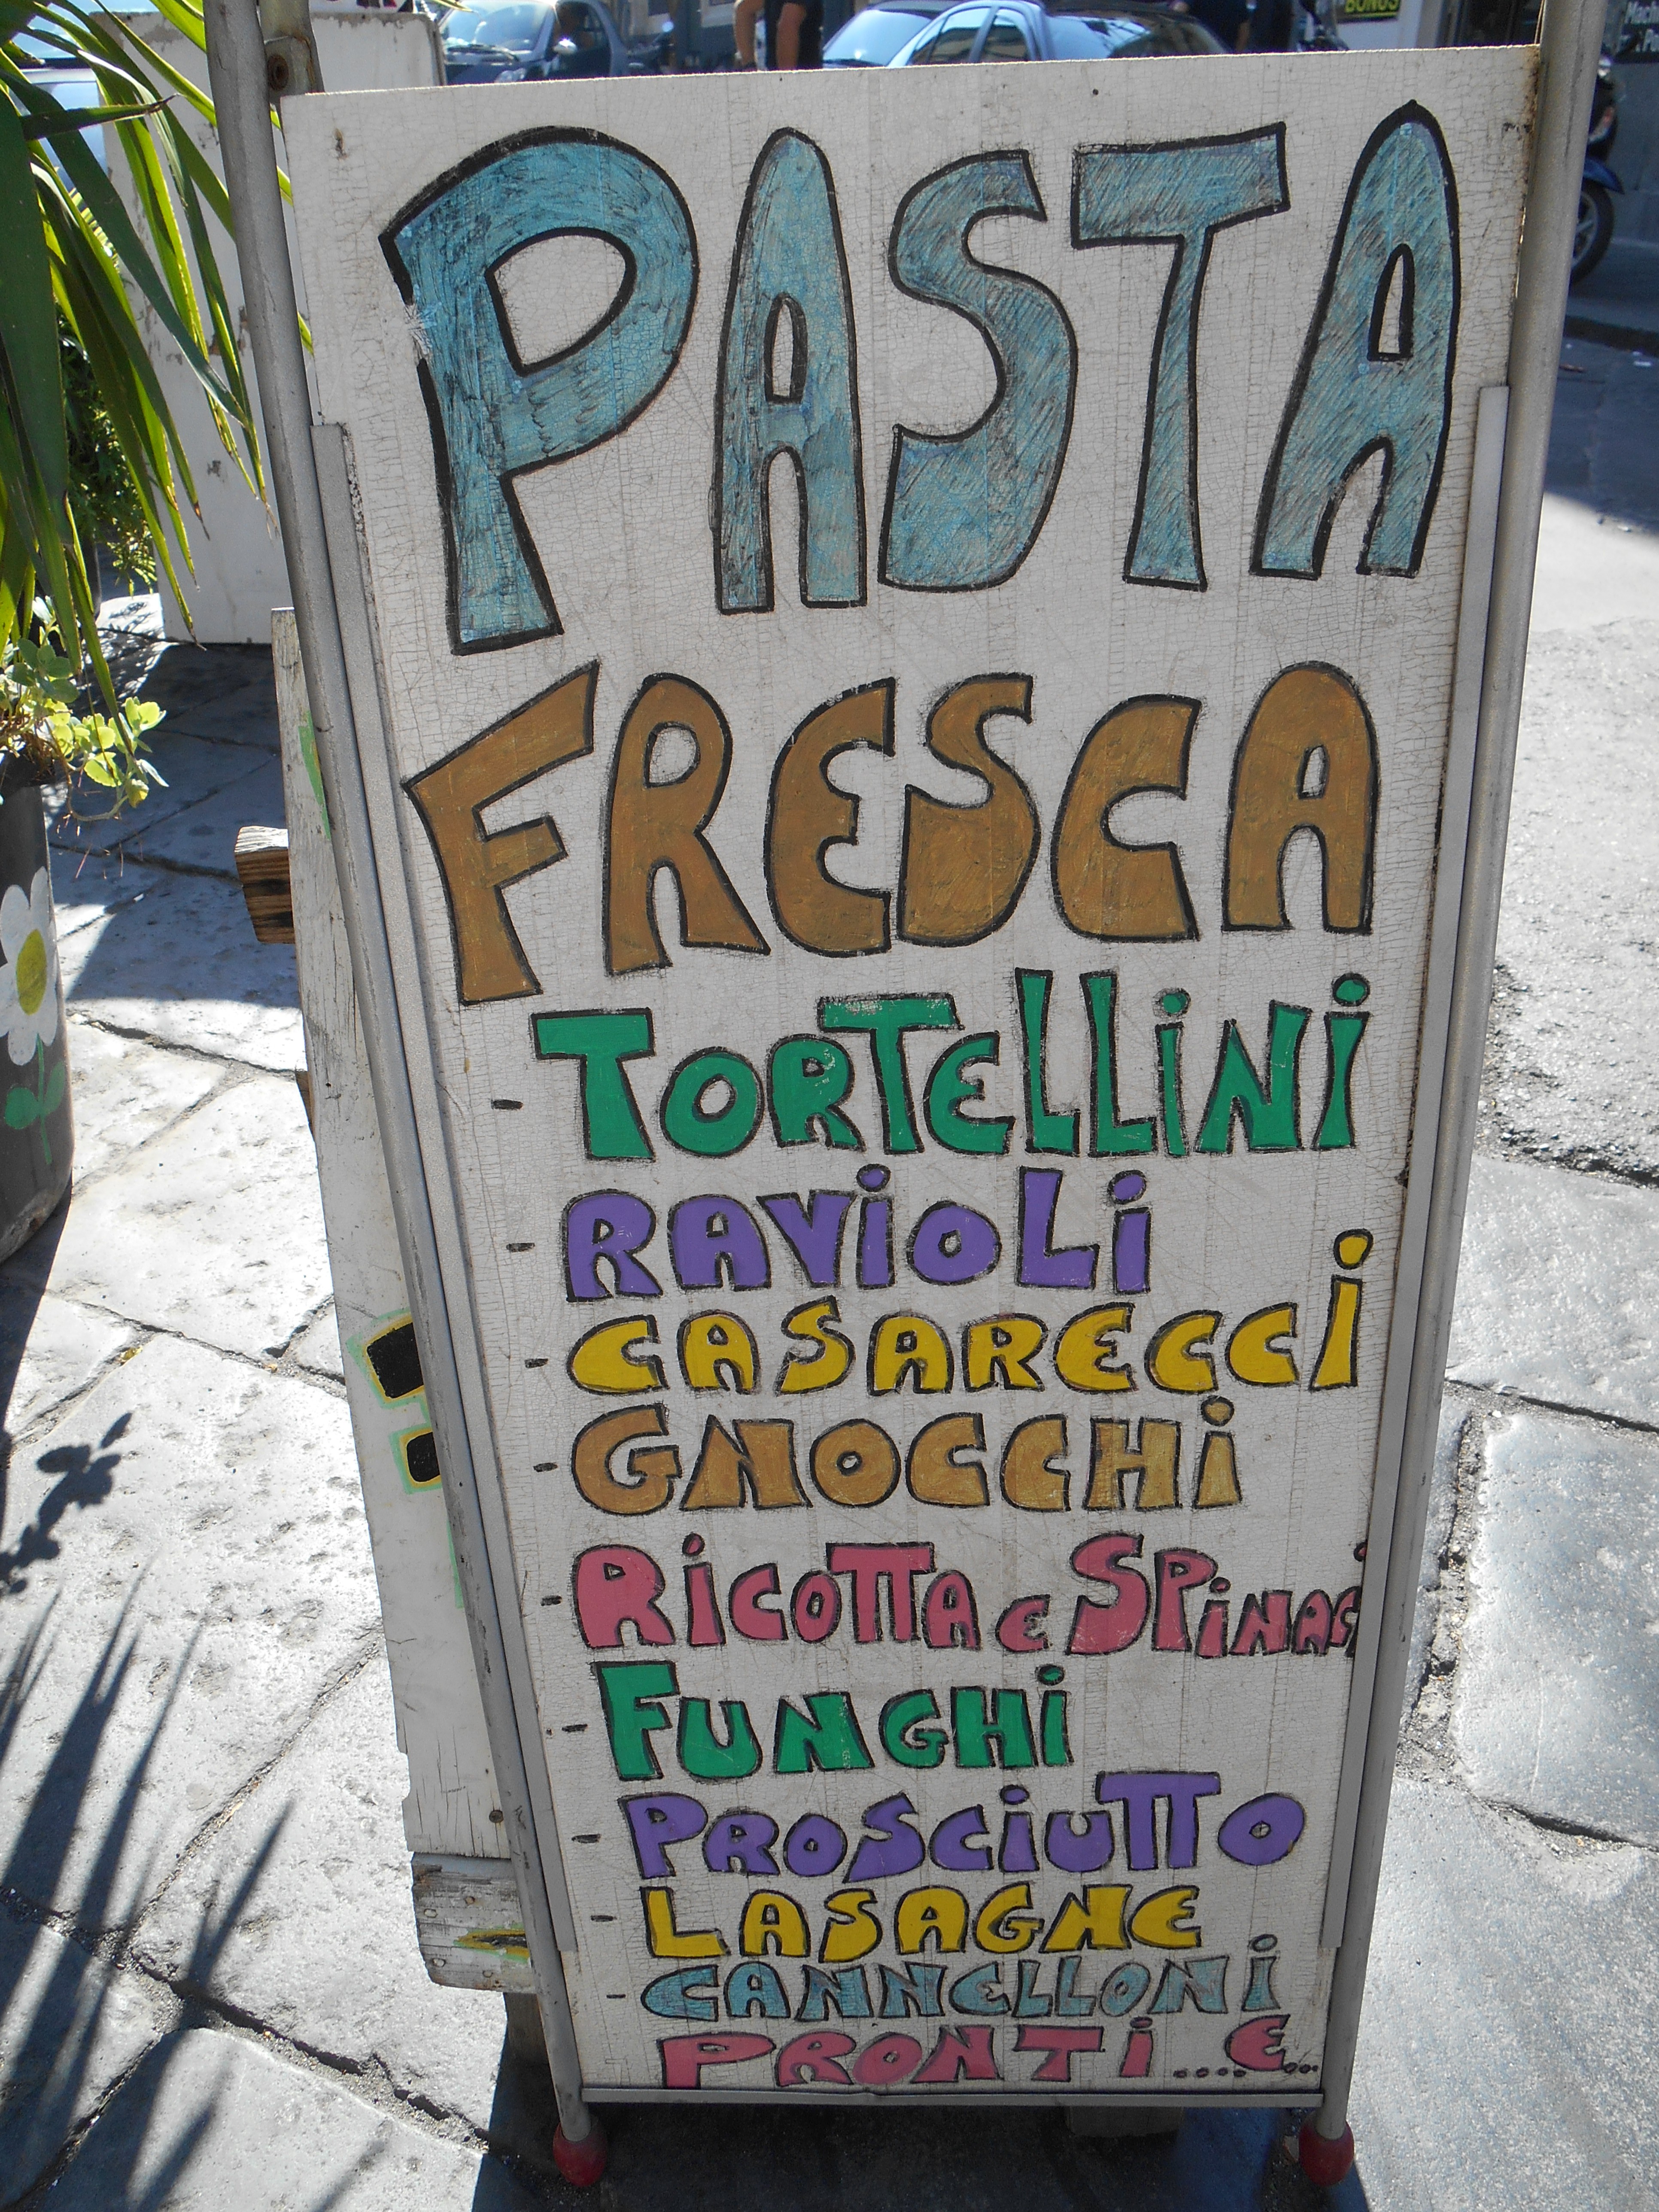 BONUS
PASTA
FRESCA
- TORTELLINI
- RAVIOLI
- CASARECCI
- GNOCCHI
- RICOTTA E SPINACI
- FUNGHI
- PROSCIUTTO
- LASAGNE
- CANNELLONI
PRONTI....E...